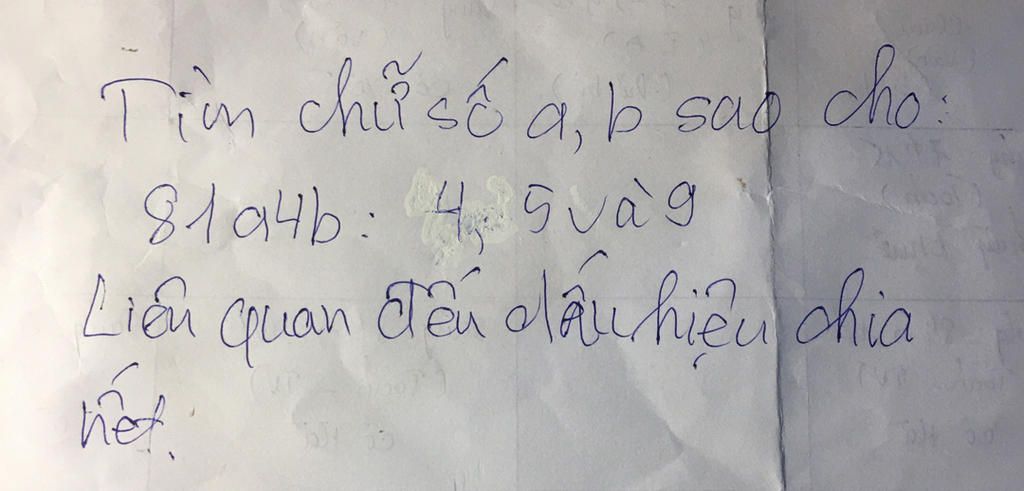 Tìm chữ số a, b sao cho:
81a4b: 4, 5 và 9
Liên quan đến dấu hiệu chia
hết.